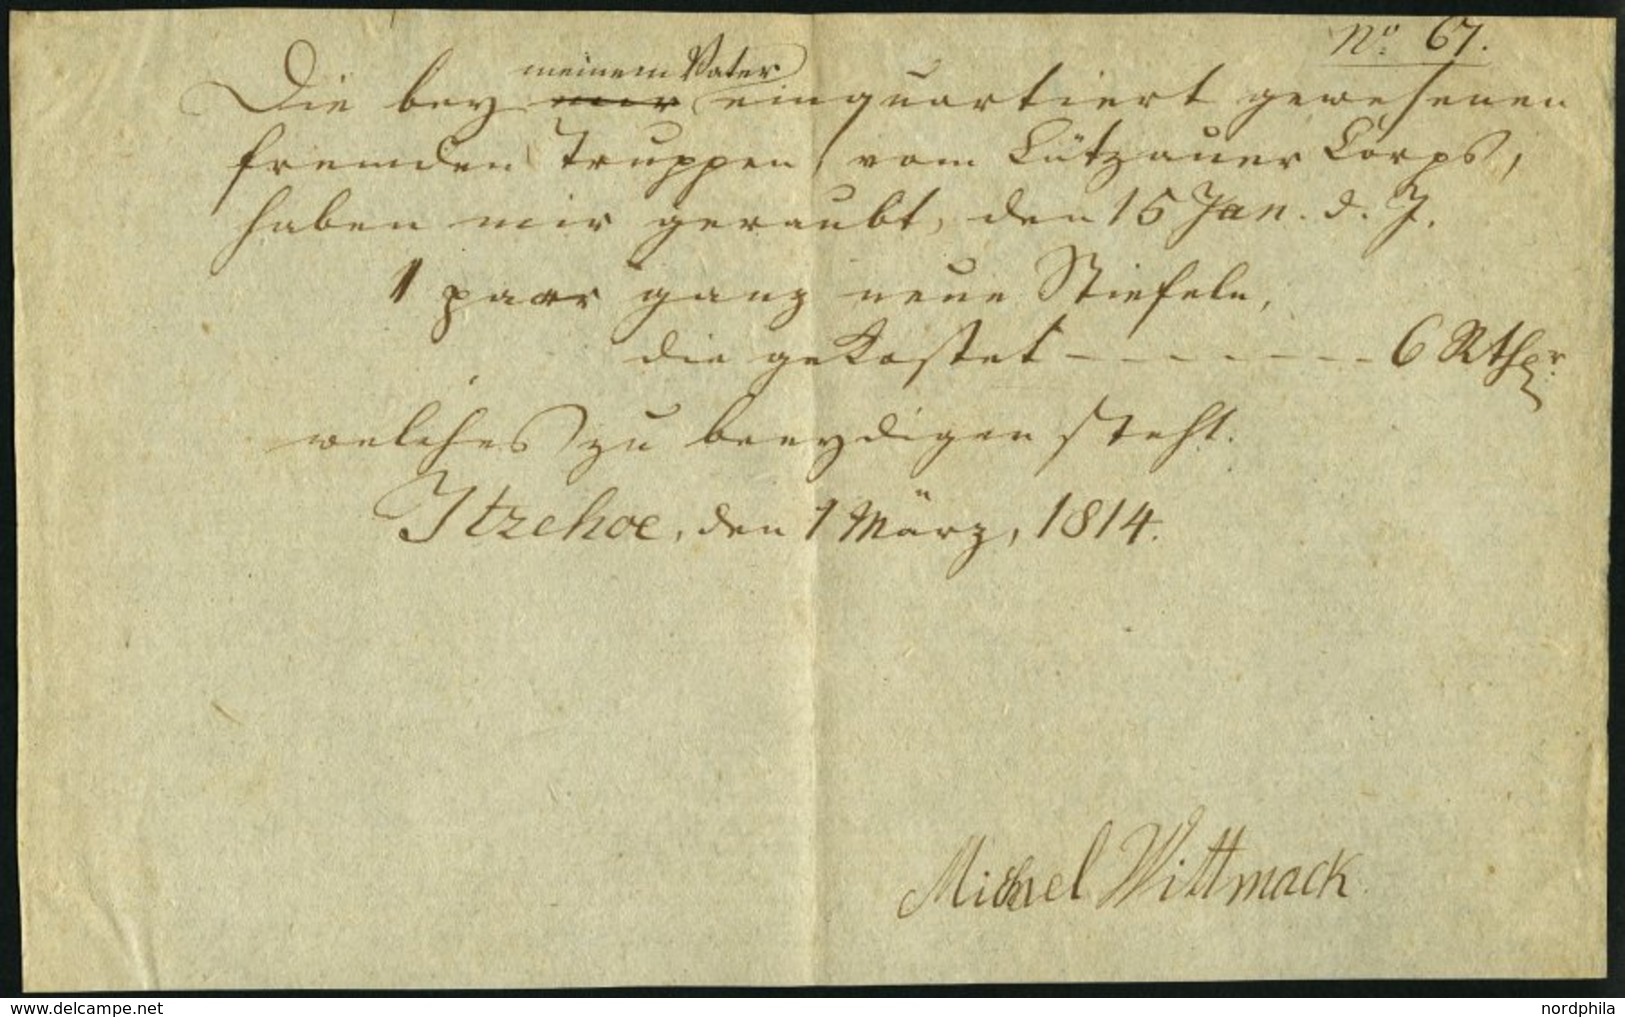 No. 67.
meinem Vater
Die bey mir einquartiert gewesenen
fremden Truppen, vom Lützauer Corps,
haben mir geraubt, den 15 Jan. d. J.
1 paar ganz neue Stiefeln,
die gekostet - - - - - - - 6 Rthlr.
welches zu beeydigen steht.
Itzehoe, den 1 März, 1814.
Michael Wittmack
www.delcampe.net
nordphila